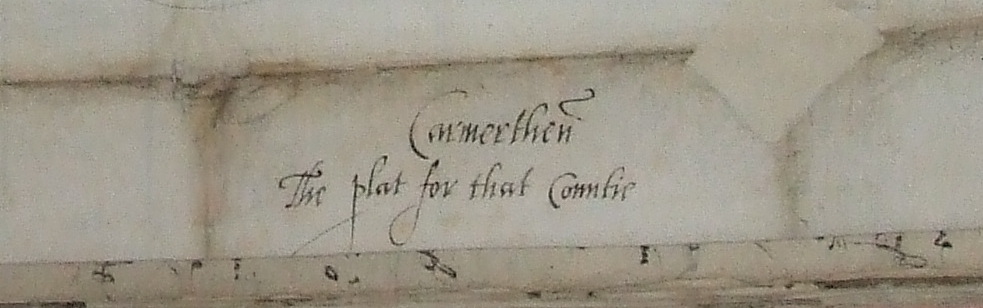 Carmerthen
The plat for that Countie